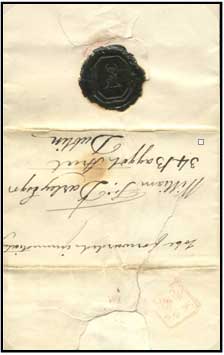 to be forwarded immediately
William Darley Esqr
34 Baggot Street
Dublin